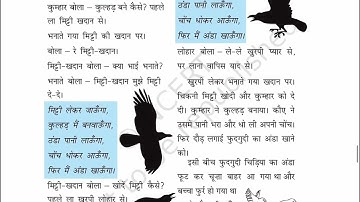 कुम्हार बोला – कुल्हड़ बने कैसे? पहले
ला मिट्टी खदान से।
भनाते गया मिट्टी की खदान पर।
बोला – रे मिट्टी-खदान।
मिट्टी-खदान बोला – क्या भाई भनाते?
भनाते बोला – मिट्टी-खदान मुझे मिट्टी
दे-दे।
मिट्टी लेकर जाऊँगा,
कुल्हड़ मैं बनवाऊँगा,
ठंडा पानी लाऊँगा,
चोंच धोकर आऊँगा,
फिर मैं अंडा खाऊँगा।
मिट्टी-खदान बोला – खोदें मिट्टी कैसे?
पहले ला खुरपी लोहार से।
ठंडा पानी लाऊँगा,
चोंच धोकर आऊँगा,
फिर मैं अंडा खाऊँगा।
लोहार बोला – ले-ले खुरपी प्यार से,
पर लाना वापिस याद से।
खुरपी लेकर भनाते गया खदान पर।
चिकनी मिट्टी खोदी और कुम्हार को दे
दी। कुम्हार ने कुल्हड़ बनाया। कौए ने
उसमें पानी भरा और धो ली अपनी चोंच।
फिर दौड़ लगाई फुदगुदी का अंडा खाने
को।
इसी बीच फुदगुदी चिड़िया का अंडा
फूट कर चूज़ा बाहर आ गया था और
बच्चा फुर्र हो गया था